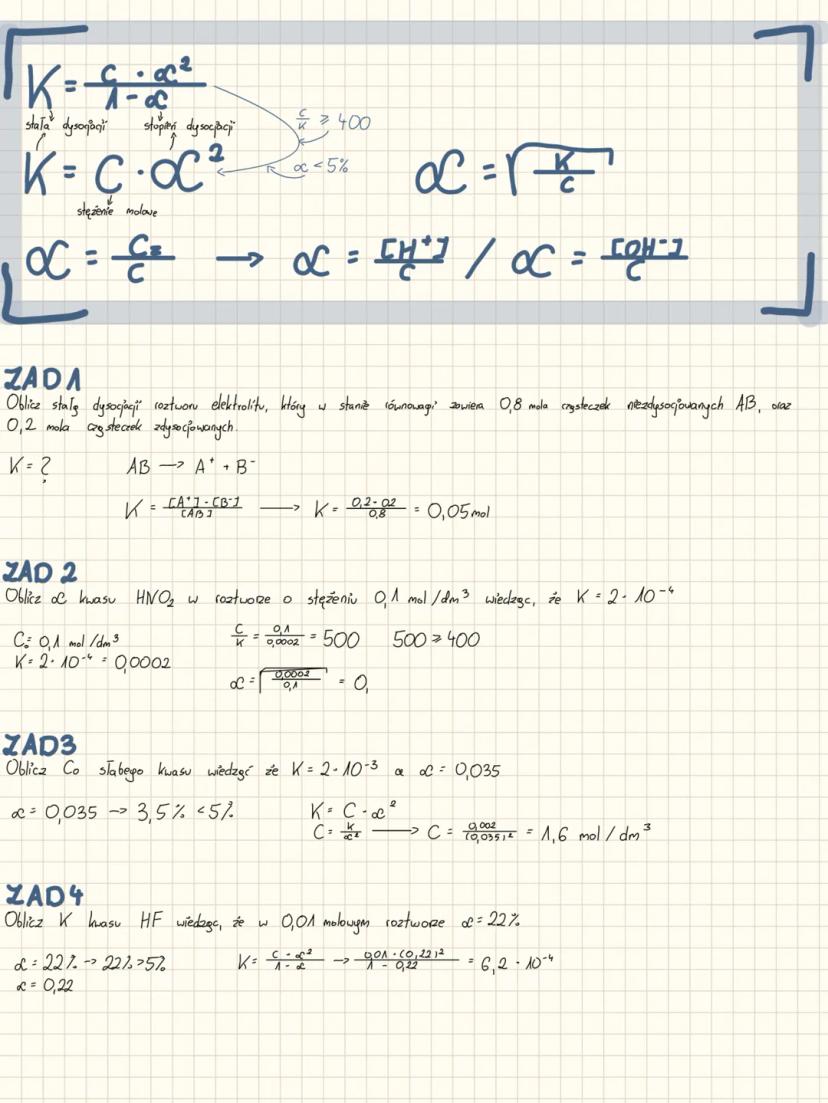 K = C · α² / 1 - α
stała dysocjacji stopień dysocjacji
C/K ≥ 400
K = C · α²
α < 5%
α = √K/C
stężenie molowe
α = Cz/C → α = [H⁺]/C / α = [OH⁻]/C
ZAD1
Oblicz stałą dysocjacji roztworu elektrolitu, który w stanie równowagi zawiera 0,8 mola cząsteczek niezdysocjowanych AB, oraz
0,2 mola cząsteczek zdysocjowanych.
K = ? AB → A⁺ + B⁻
K = [A⁺]·[B⁻]/[AB] → K = 0,2·02/0,8 = 0,05 mol
ZAD 2
Oblicz α kwasu HNO₂ w roztworze o stężeniu 0,1 mol/dm³ wiedząc, że K = 2·10⁻⁴
C₀= 0,1 mol/dm³ C/K = 0,1/0,0002 = 500 500 ≥ 400
K = 2·10⁻⁴ = 0,0002
α = √0,0002/0,1 = 0,
ZAD3
Oblicz Co słabego kwasu wiedząć że K = 2·10⁻³ a α = 0,035
α = 0,035 → 3,5% <5% K = C·α²
C = K/α² → C = 0,002/(0,035)² = 1,6 mol/dm³
ZAD4
Oblicz K kwasu HF wiedząc, że w 0,01 molowym roztworze α = 22%
α = 22% → 22% >5% K = C·α²/1-α → 0,01·(0,22)²/1 - 0,22 = 6,2 · 10⁻⁴
α = 0,22